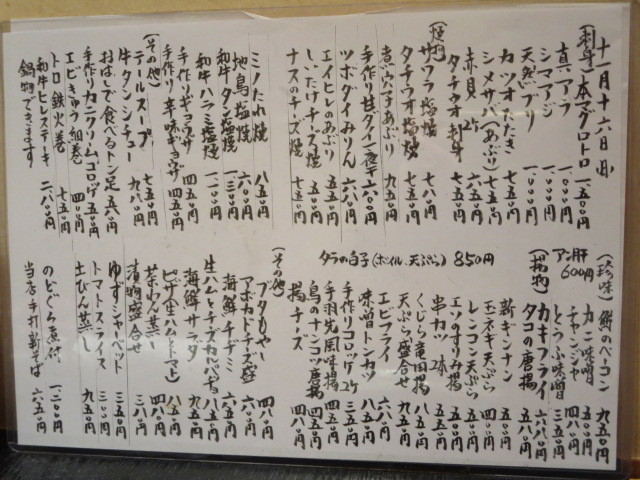 十一月十六日(月)
(刺身)本マグロトロ 一、五〇〇円
真アラ 一、〇〇〇円
シマアジ 一、〇〇〇円
天然ブリ 一、〇〇〇円
カツオたたき 七五〇円
シメサバ(あぶり) 七五〇円
赤貝 2ケ 六五〇円
タチウオ刺身
(焼物)
サワラ塩焼 七八〇円
タチウオ塩焼
煮穴子あぶり 九五〇円
手作り甘ダイ一夜干 六〇〇円
ツボダイみりん 六八〇円
エイヒレのあぶり 五五〇円
しいたけチーズ焼
ナスのチーズ焼 七五〇円
ミノたれ焼 八五〇円
地鳥塩焼 六〇〇円
和牛タン塩焼 一、三〇〇円
和牛ハラミ塩焼 一、一〇〇円
手作りギョウザ 四五〇円
手作り辛味ギョウザ 四五〇円
(その他)
テールスープ 七五〇円
牛タンシチュー
おはしで食べるトン足 五八〇円
手作りカニクリームコロッケ 五五〇円
エビきゅう細巻 四〇〇円
トロ鉄火巻 七五〇円
和牛ヒレステーキ 二、八〇〇円
鍋物できます
(珍味)
鯨のベーコン 九五〇円
カニ味噌 五〇〇円
チャンジャ 四八〇円
とうふ味噌 三五〇円
アン肝 600円
(揚物)
カキフライ 六八〇円
タコの唐揚 五八〇円
新ギンナン 五〇〇円
玉ネギ天ぷら 四〇〇円
レンコン天ぷら 五五〇円
エソのすりみ揚 五五〇円
串カツ 2本
くじら竜田揚 八五〇円
天ぷら盛合せ 九五〇円
エビフライ 六八〇円
味噌トンカツ 八五〇円
手作りコロッケ 2ケ 三五〇円
手羽先風味揚 四五〇円
鳥のナンコツ唐揚 四五〇円
揚チーズ 四八〇円
タラの白子(ボイル、天ぷら) 850円
(その他)
ブタもやし 四八〇円
アボカドチーズ盛 六五〇円
海鮮チヂミ 六五〇円
生ハムとチーズカルパッチョ 八五〇円
海鮮サラダ 九五〇円
ピザ(生ハムとトマト) 八五〇円
茶わん蒸し 四八〇円
漬物盛合せ 三八〇円
ゆずシャーベット 三五〇円
トマトスライス 三〇〇円
土びん蒸し 九五〇円
のどぐろ煮付 一、二〇〇円
当店手打新そば 六五〇円